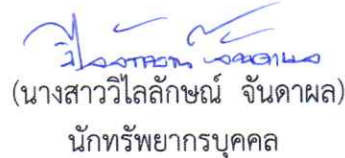 วิไลลักษณ์ จันดาผล
(นางสาววิไลลักษณ์ จันดาผล)
นักทรัพยากรบุคคล